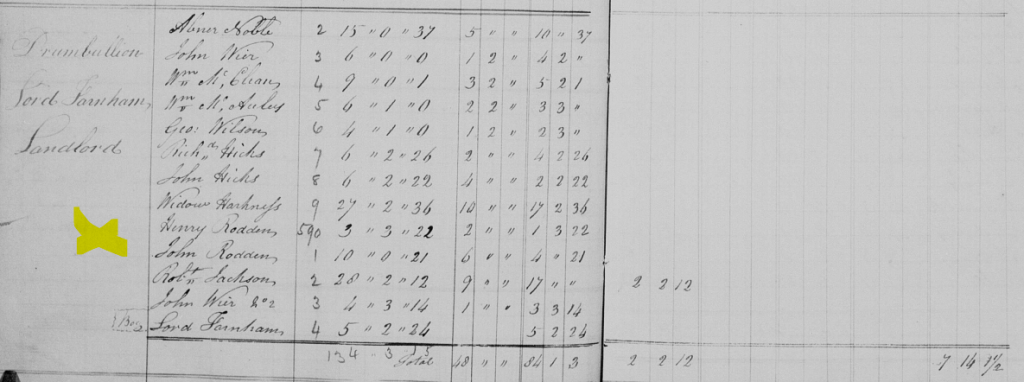 Abner Noble 2 15 " 0 " 37 5 " " 10 " 37
Drumbullion John Wier 3 6 " 0 " 0 1 2 " 4 2 "
Wm Mc, 4 9 " 0 " 1 3 2 " 5 2 1
Lord Farnham, Wm 5 6 " 1 " 0 2 2 " 3 3 "
Geo: Wilson 6 4 " 1 " 0 1 2 " 2 3 "
Landlord Richd Hicks 7 6 " 2 " 26 2 " " 4 2 26
John Hicks 8 6 " 2 " 22 4 " " 2 2 22
Widow Harkness 9 27 " 2 " 36 10 " " 17 2 36
Henry Rodden 590 3 " 3 " 22 2 " " 1 3 22
John Rodden 1 10 " 0 " 21 6 " " 4 " 21
Robt Jackson 2 28 " 2 " 12 9 " " 17 " " 2 2 12
John Wier No 2 3 4 " 3 " 14 1 " " 3 3 14
Lord Farnham 4 5 " 2 " 24 5 2 24
134 " 3 Total 48 " " 84 1 3 2 2 12 7 14 1 1/2